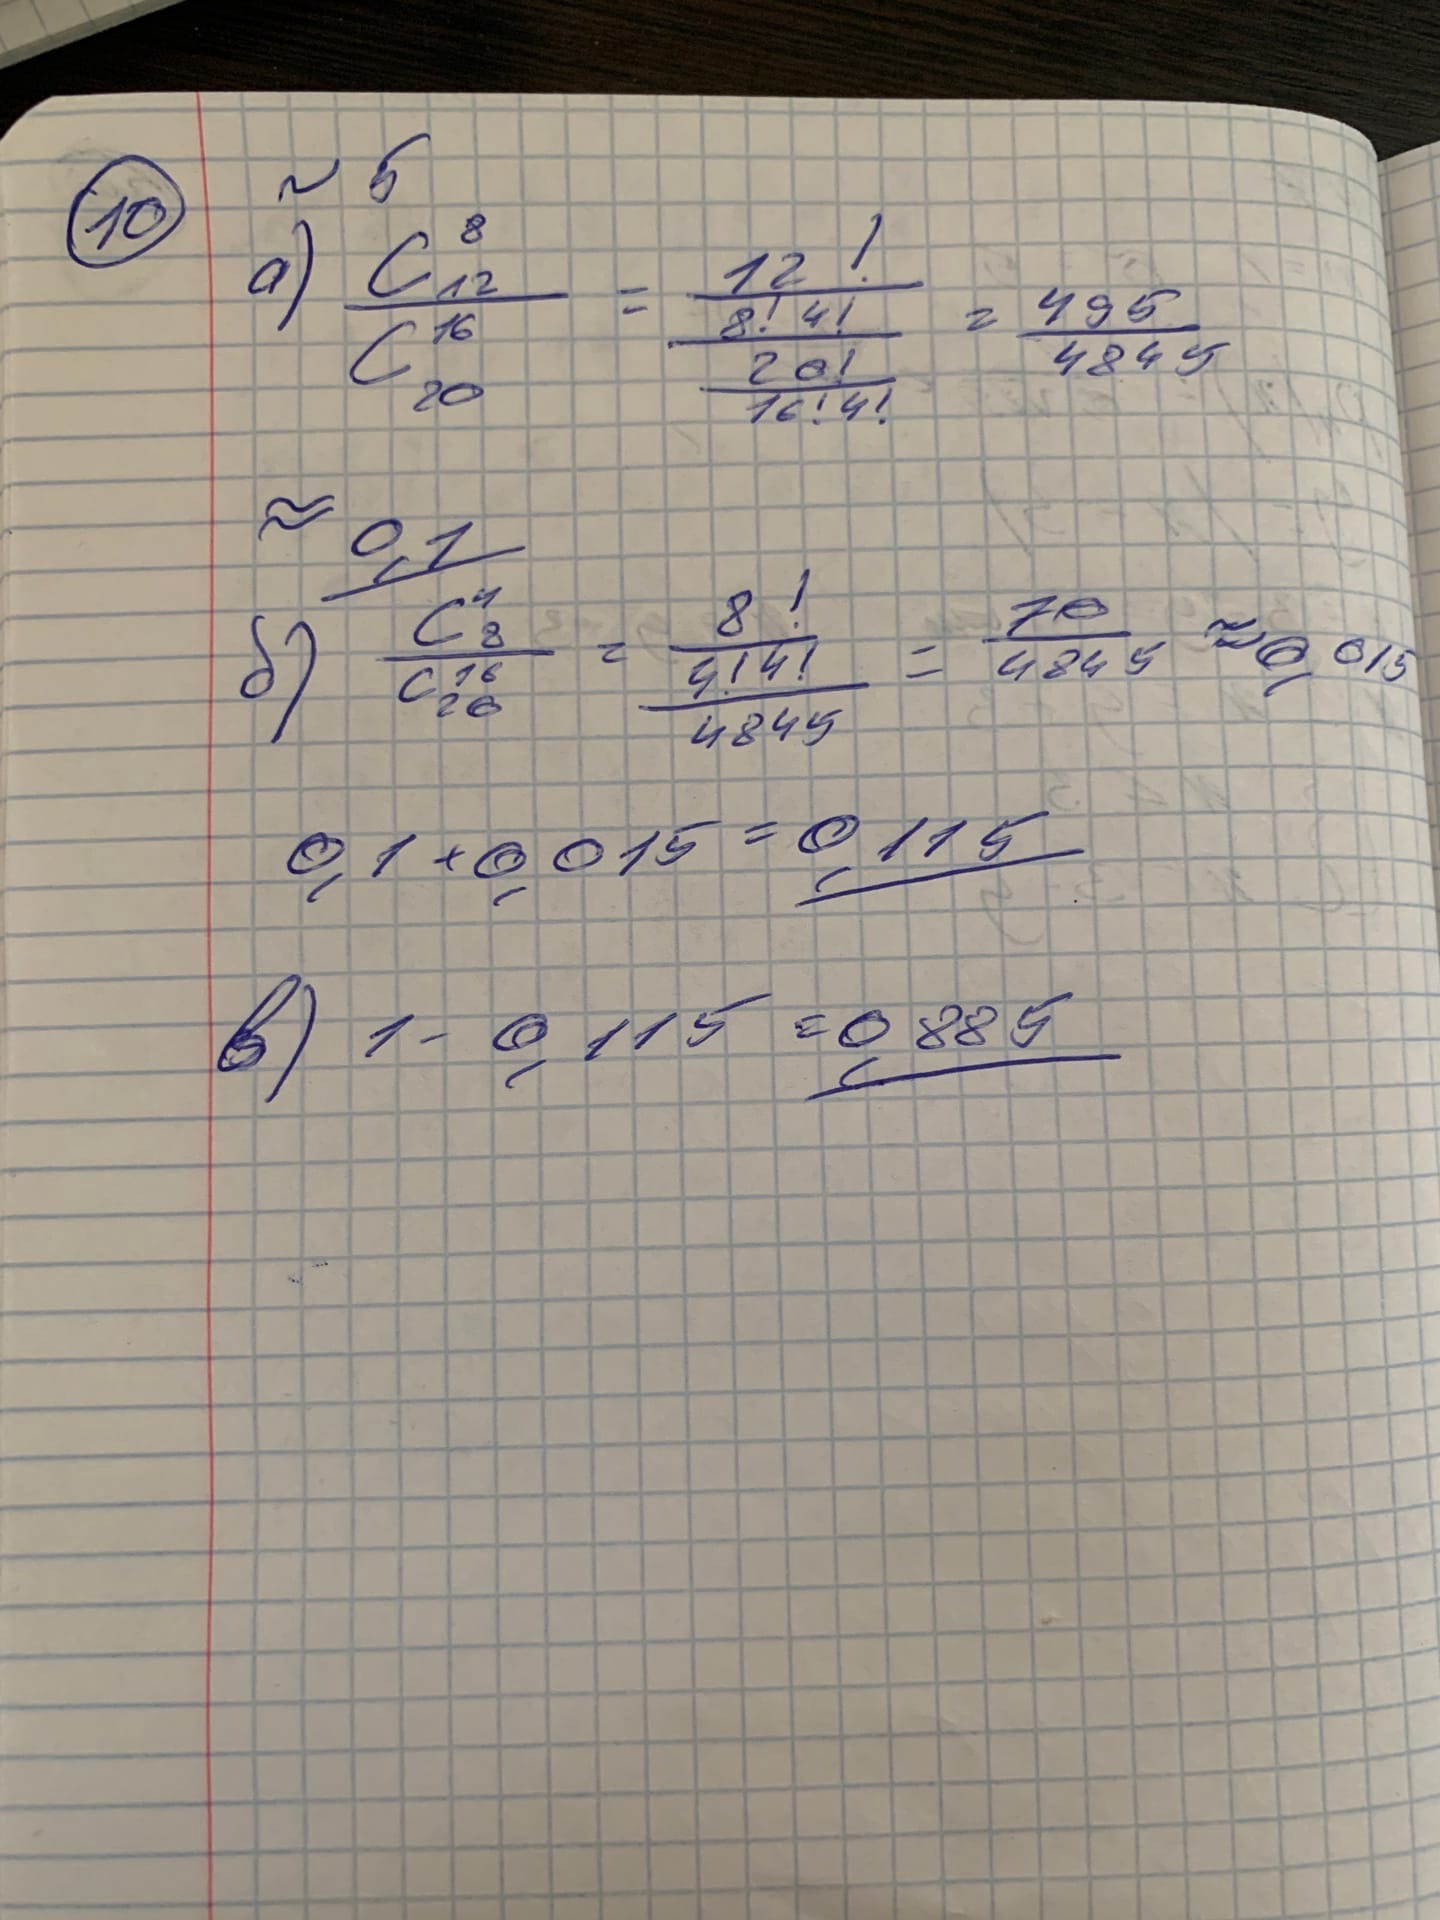 10
~ 5
а) C⁸₁₂ / C¹⁶₂₀ = (12! / 8! 4!) / (20! / 16! 4!) = 495 / 4845
≈ 0,1
б) C⁴₈ / C¹⁶₂₀ = (8! / 4! 4!) / 4845 = 70 / 4845 ≈ 0,015
0,1 + 0,015 = 0,115
в) 1 - 0,115 = 0,885